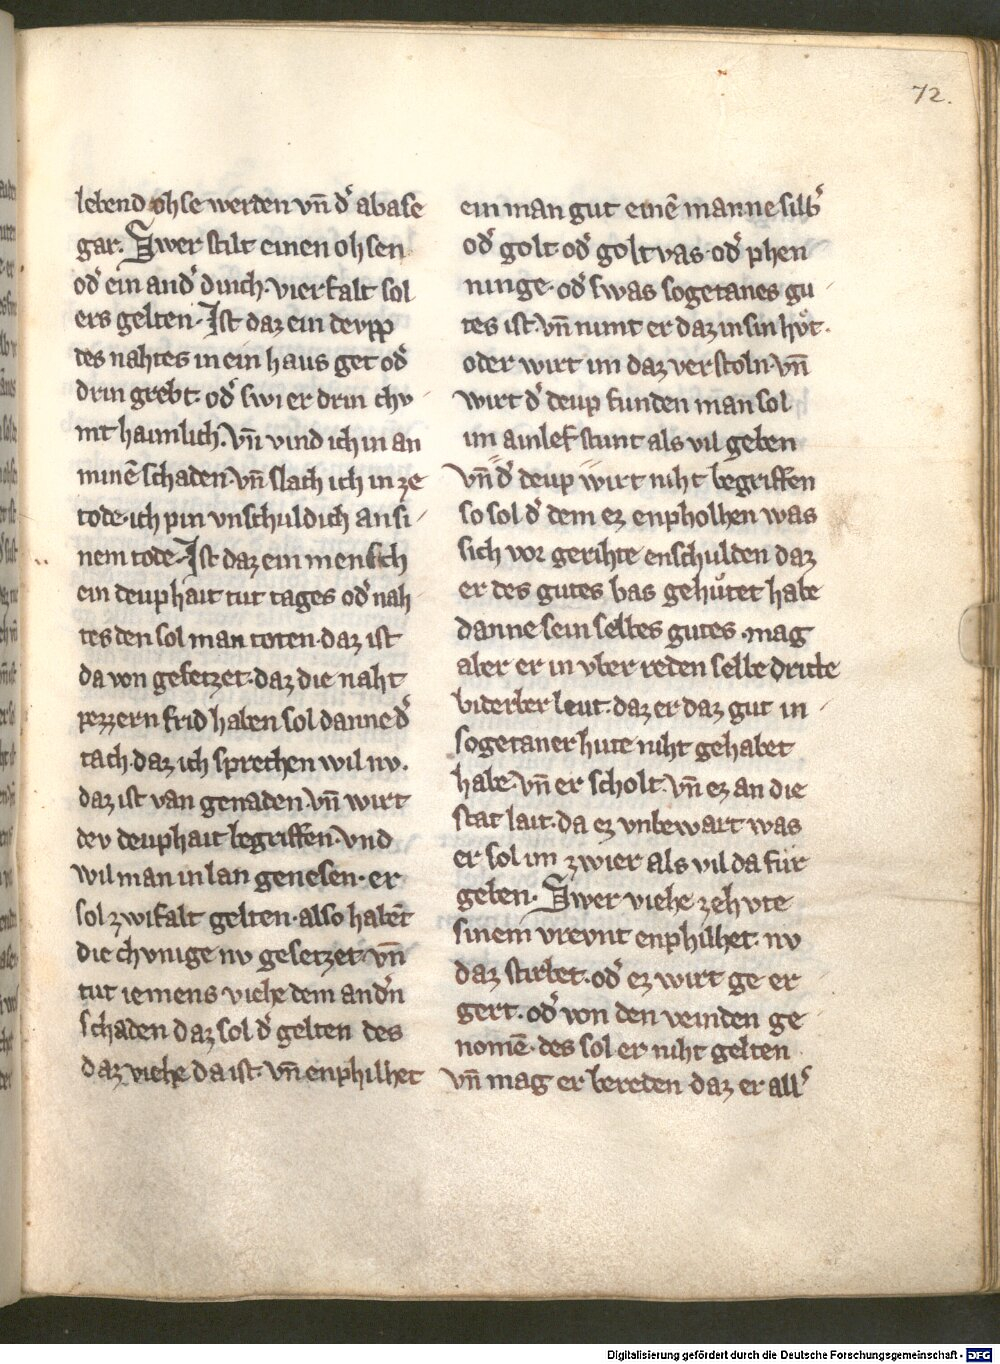 72.
lebend ohse werden vn̄ d᾽ abase
gar. Swer stilt einen ohsen
od᾽ ein and᾽ dinch. vierfalt sol
ers gelten. Ist daz ein deupp
des nahtes in ein haus get od᾽
drin grebt. od᾽ swi er drin chv
mt haimlich. vn̄ vind ich in an
minē schaden. vn̄ slach ich in ze
tode. ich pin vnschuldich an si
nem tode. Ist daz ein mensch
ein deuphait tut tages od᾽ nah
tes den sol man toten. daz ist
da von gesetzet. daz die naht
pezzern frid haben sol danne d᾽
tach. daz ich sprechen wil nv.
daz ist van genaden. vn̄ wirt
dev deuphait begriffen. vnd
wil man in lan genesen. er
sol zwifalt gelten. also habēt
die chvnige nv gesetzet. vn̄
tut iemens viehe dem and᾽n
schaden daz sol d᾽ gelten des
daz viehe da ist. vn̄ enphilhet
ein man gut einē manne silb᾽
od᾽ golt. od᾽ golt vas. od᾽ phen
ninge. od᾽ swas sogetanes gu
tes ist. vn̄ nimt er daz in sin hůt.
oder wirt im daz verstoln. vn̄
wirt d᾽ deup funden man sol
im ainlef stunt als vil geben
vn̄ d᾽ deup wirt niht begriffen
so sol d᾽ dem ez enpholhen was
sich vor gerihte enschulden daz
er des gutes bas gehůtet habe
danne sein selbes gutes. mag
aler er in vber reden selbe dritte
biderber leut. daz er daz gut in
sogetaner hute niht gehabet
habe. vn̄ er scholt. vn̄ ez an die
stat lait. da ez vnbewart was
er sol im zwier als vil da für
geben. Swer viehe ze hvte
sinem vreunt enphilhet. nv
daz stirbet. od᾽ ez wirt ge er
gert. od᾽ von den veinden ge
nomē. des sol er niht gelten
vn̄ mag er bereden daz er all᾽
Digitalisierung gefördert durch die Deutsche Forschungsgemeinschaft - DFG